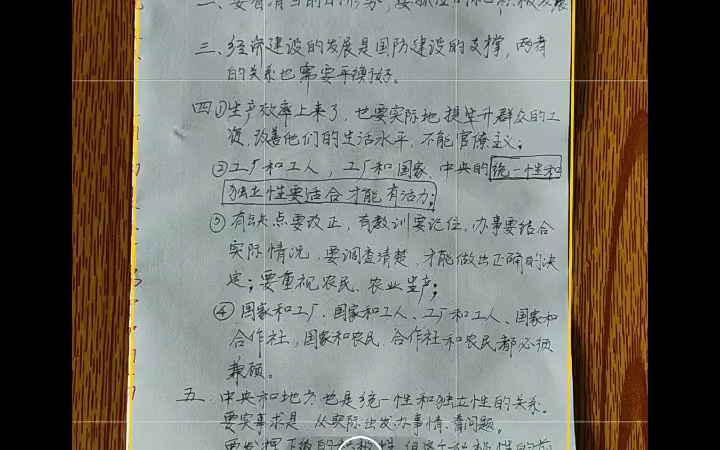 三、经济建设的发展是国防建设的支撑，两者
的关系也需要平衡好。
四①生产效率上来了，也要实际地提升群众的工
资，改善他们的生活水平，不能官僚主义；
②工厂和工人，工厂和国家、中央的统一性和
独立性要适合才能有活力；
③有缺点要改正，有教训要记住，办事要结合
实际情况，要调查清楚，才能做出正确的决
定；要重视农民、农业生产；
④国家和工厂、国家和工人、工厂和工人、国家和
合作社，国家和农民、合作社和农民都必须
兼顾。
五、中央和地方也是统一性和独立性的关系。
要实事求是，从实际出发办事情、看问题。